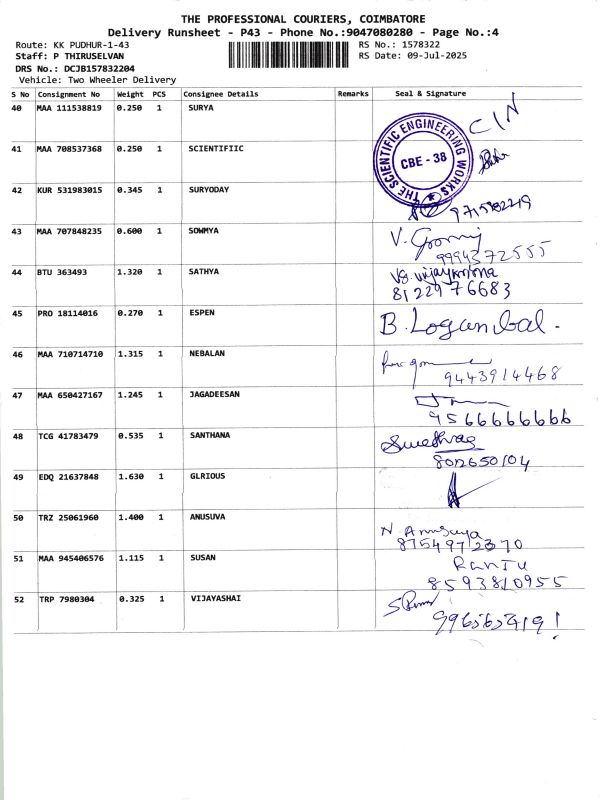 THE PROFESSIONAL COURIERS, COIMBATORE
Delivery Runsheet - P43 - Phone No.:9047080280 - Page No.:4
Route: KK PUDHUR-1-43 RS No.: 1578322
Staff: P THIRUSELVAN RS Date: 09-Jul-2025
DRS No.: DCJB157832204
Vehicle: Two Wheeler Delivery
S No Consignment No Weight PCS Consignee Details Remarks Seal & Signature
40 MAA 111538819 0.250 1 SURYA CIN
41 MAA 708537368 0.250 1 SCIENTIFIIC
THE SCIENTIFIC ENGINEERING WORKS
CBE - 38
42 KUR 531983015 0.345 1 SURYODAY
43 MAA 707848235 0.600 1 SOWMYA V.
9994372555
44 BTU 363493 1.320 1 SATHYA
8122976683
45 PRO 18114016 0.270 1 ESPEN B. Loganbal.
46 MAA 710714710 1.315 1 NEBALAN
9443914468
47 MAA 650427167 1.245 1 JAGADEESAN
9566666666
48 TCG 41783479 0.535 1 SANTHANA
8012650104
49 EDQ 21637848 1.630 1 GLRIOUS
50 TRZ 25061960 1.400 1 ANUSUVA N. Anusuya
8754972370
51 MAA 945406576 1.115 1 SUSAN
8593810955
52 TRP 7980304 0.325 1 VIJAYASHAI